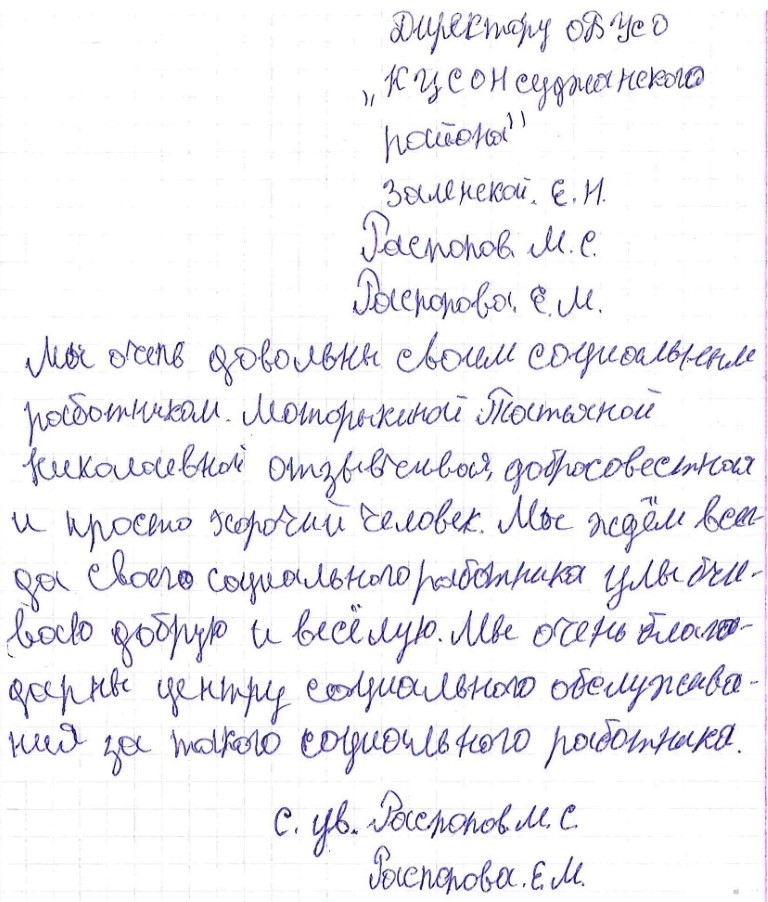 Директору ОБУСО
„КЦСОН суджанского
района"
Заленской. Е.Н.
Распопов М.С.
Распопова. Е.М.
Мы очень довольны своим социальным
работником. Моторыкиной Татьяной
Николаевной отзывчивая, добросовестная
и просто хороший человек. Мы ждём всег-
да своего социального работника улыбчи-
вою добрую и весёлую. Мы очень благо-
дарны центру социального обслужива-
ния за такого социального работника.
с. ув. Распопов М.С.
Распопова. Е.М.